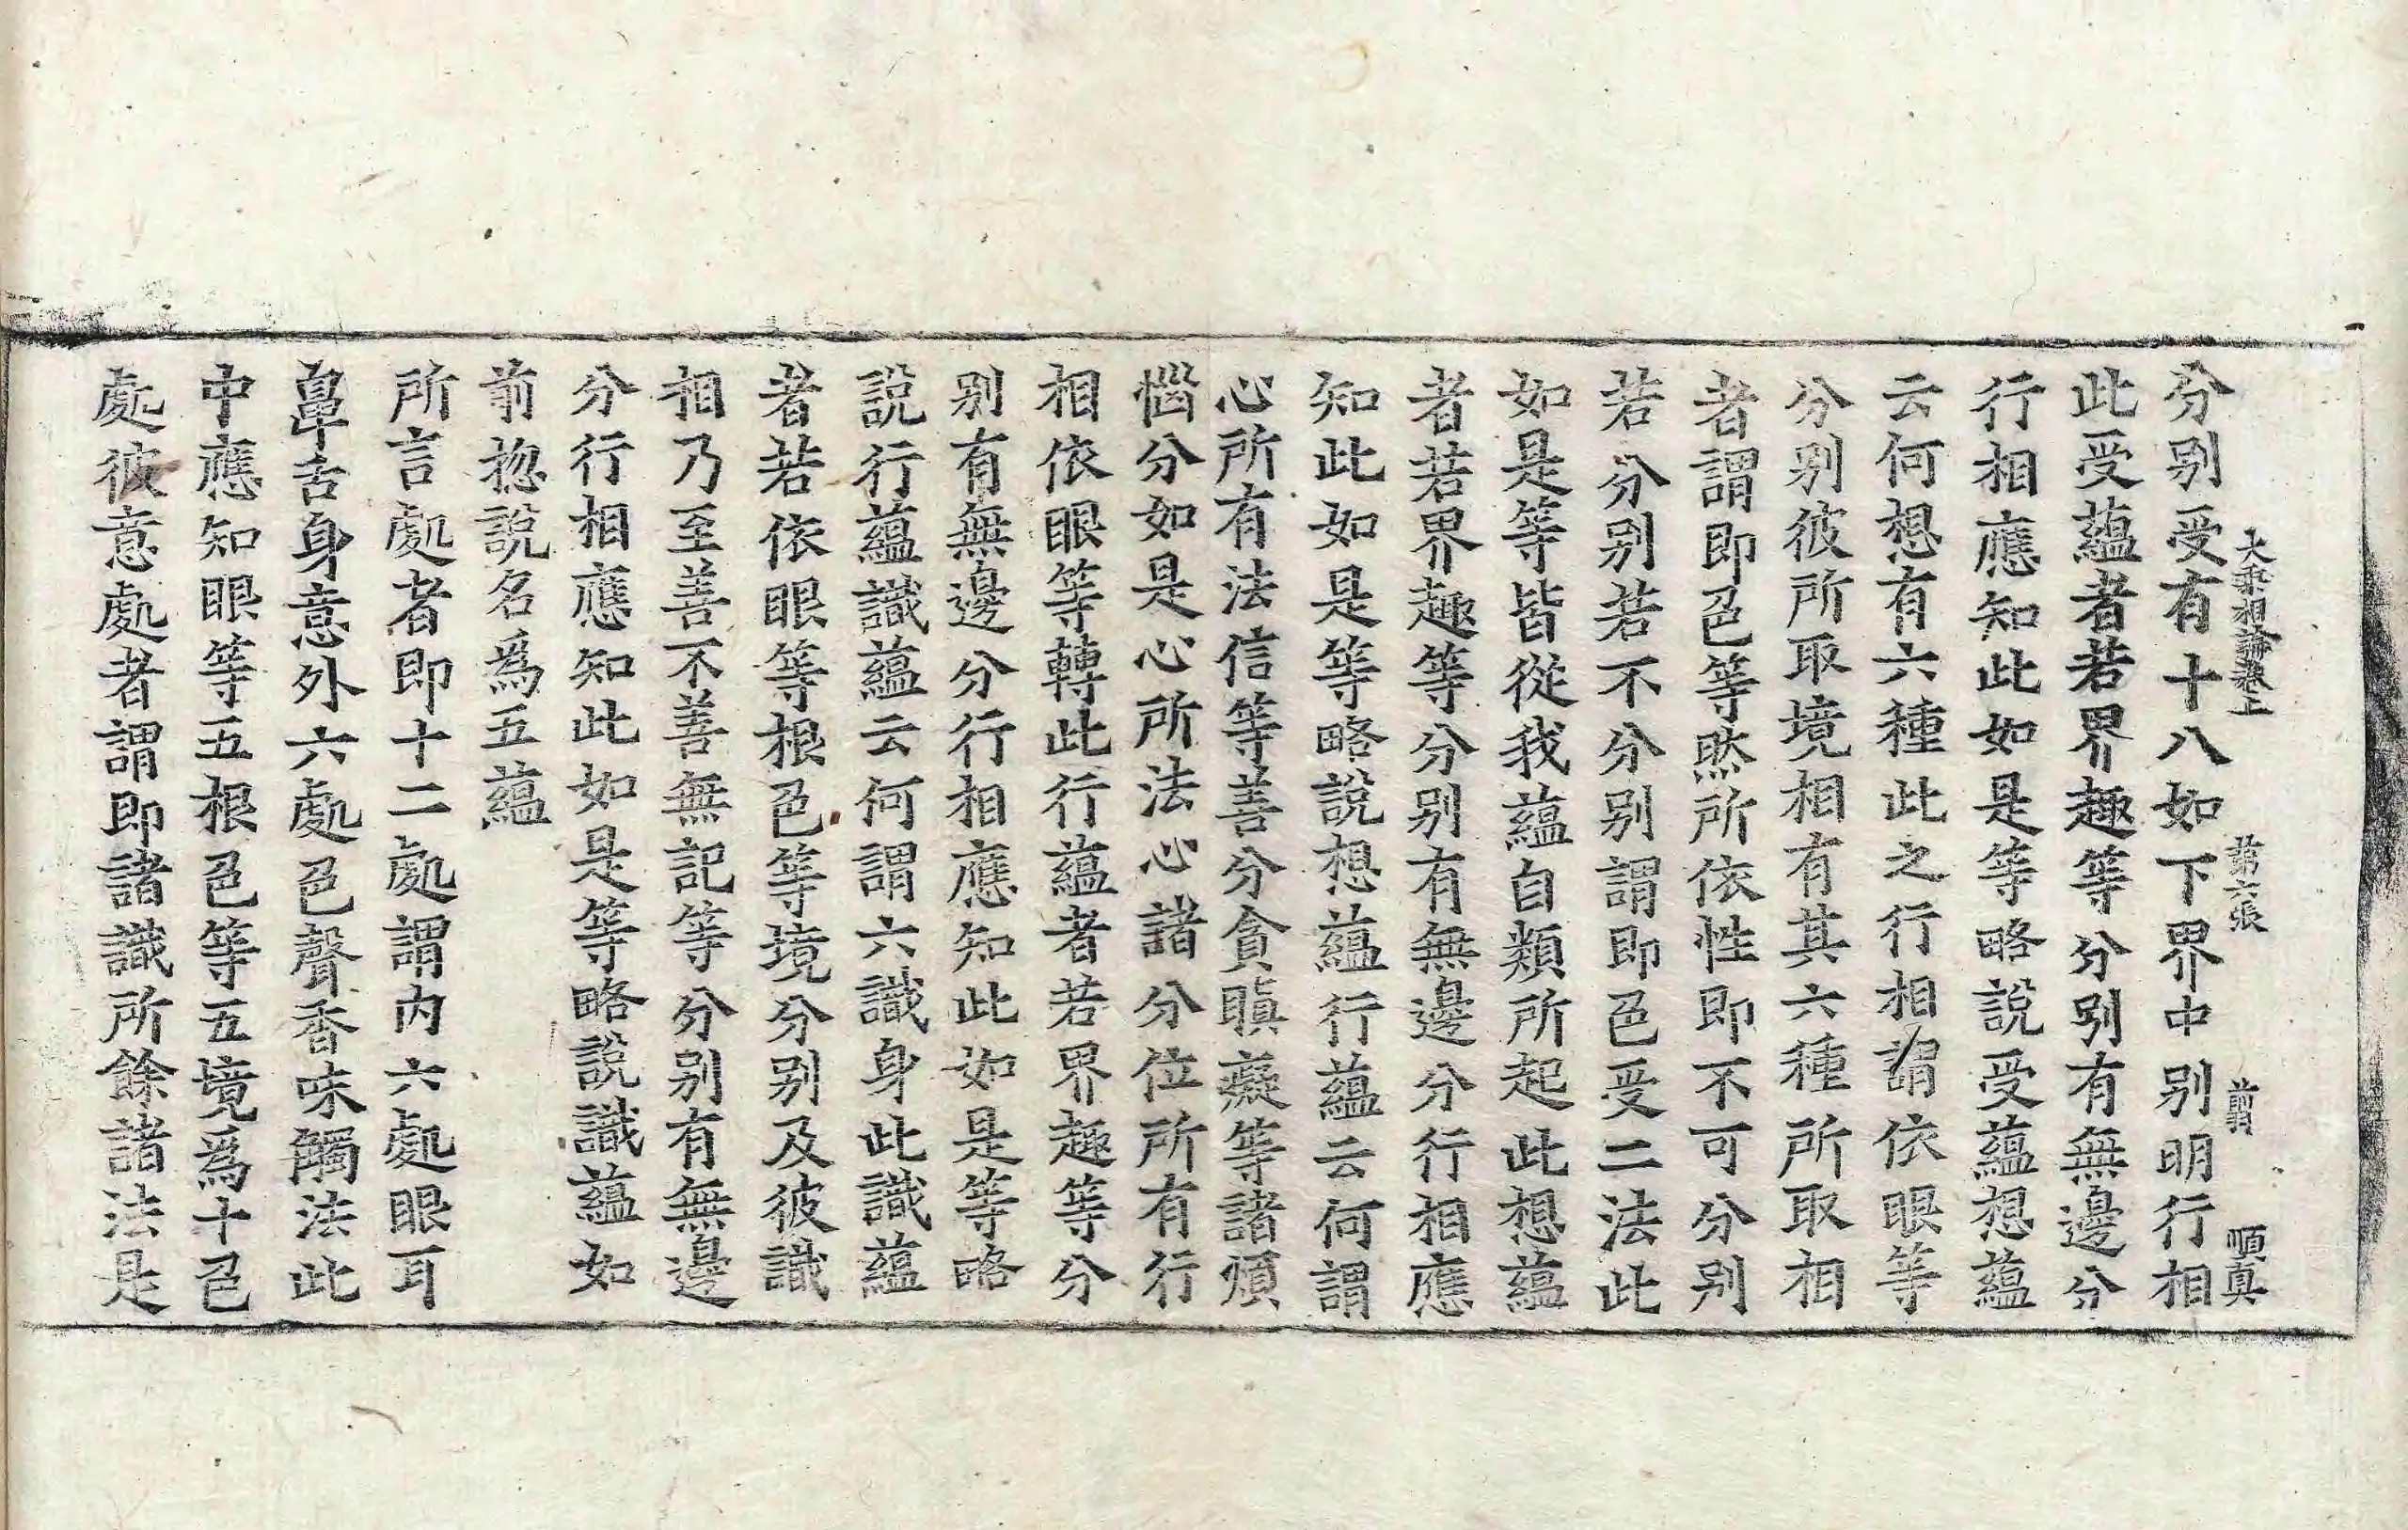 大乘相論卷上 第六張 順真
分别受有十八如下界中别明行相
此受蘊者若界趣等分别有無邊分
行相應知此如是等略說受蘊想蘊
云何想有六種此之行相謂依眼等
分别彼所取境相有其六種所取相
者謂即色等然所依性即不可分别
若分别若不分别謂即色受二法此
如是等皆從我蘊自類所起此想蘊
者若界趣等分别有無邊分行相應
知此如是等略說想蘊行蘊云何謂
心所有法信等善分貪瞋癡等諸煩
惱分如是心所法心諸分位所有行
相依眼等轉此行蘊者若界趣等分
别有無邊分行相應知此如是等略
說行蘊識蘊云何謂六識身此識蘊
者若依眼等根色等境分别及彼識
相乃至善不善無記等分别有無邊
分行相應知此如是等略說識蘊如
前揔說名爲五蘊
所言處者即十二處謂内六處眼耳
鼻舌身意外六處色聲香味觸法此
中應知眼等五根色等五境爲十色
處彼意處者謂即諸識所餘諸法是